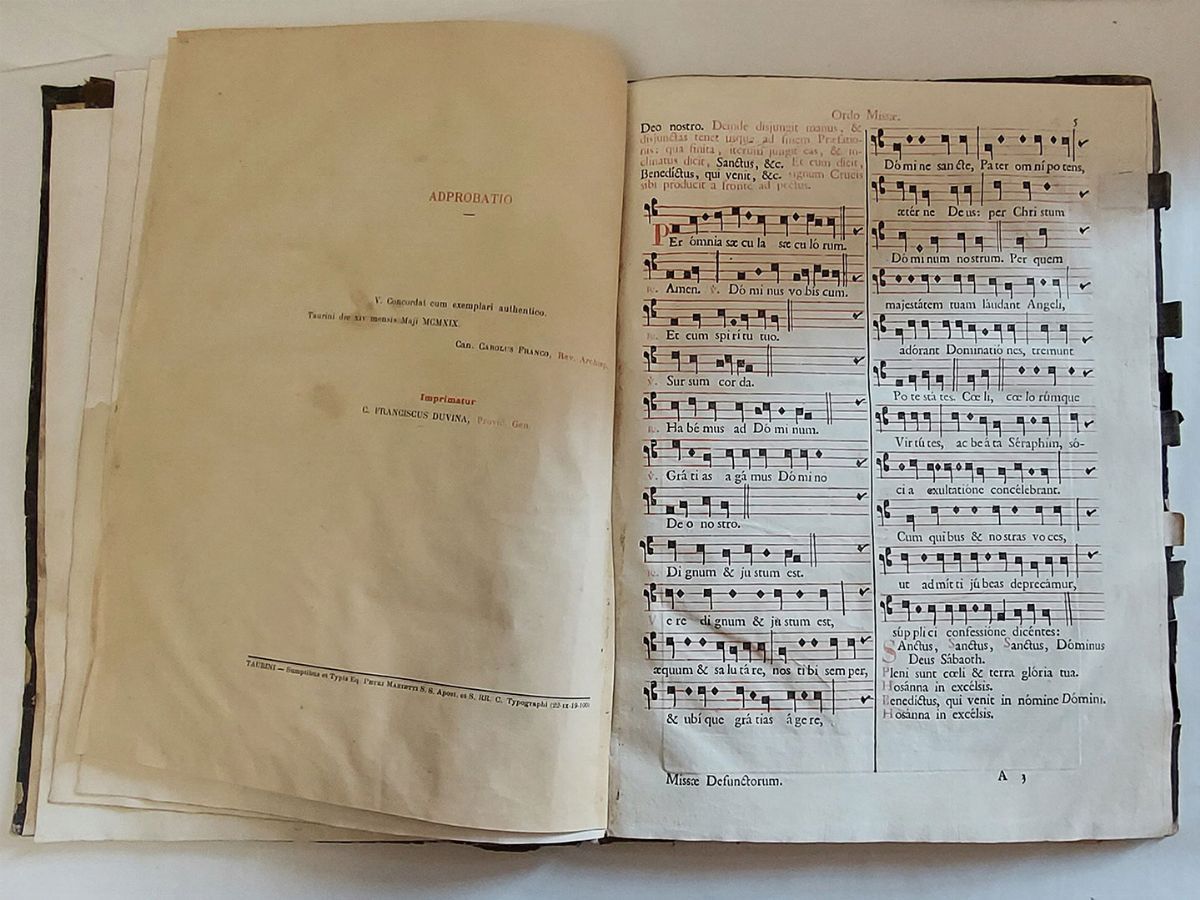 ADPROBATIO
V. Concordat cum exemplari authentico.
Taurini die xiv mensis Maji MCMXIX.
Can. CAROLUS FRANCO, Rev. Archiep.
Imprimatur
C. FRANCISCUS DUVINA, Provic. Gen.
TAURINI — Sumptibus et Typis Eq. PETRI MARIETTI S. S. Apost. et S. RR. C. Typographi (22-IX-19-100)
Ordo Missæ.
5
Deo nostro. Deinde disjungit manus, &
disjunctas tenet usque ad finem Præfatio-
nis: qua finita, iterum jungit eas, & in-
clinatus dicit, Sanctus, &c. Et cum dicit,
Benedictus, qui venit, &c. signum Crucis
sibi producit a fronte ad pectus.
PEr ómnia sæ cu la sæ cu ló rum.
℟. Amen. ℣. Dó mi nus vo bis cum.
℟. Et cum spi rí tu tuo.
℣. Sur sum cor da.
℟. Ha bé mus ad Dó mi num.
℣. Grá ti as a gá mus Dó mi no
De o no stro.
℟. Di gnum & ju stum est.
V e re di gnum & ju stum est,
æquum & sa lu tá re, nos ti bi sem per,
& ubí que grá tias á ge re,
Dó mi ne san cte, Pa ter om ní po tens,
ætér ne De us: per Chri stum
Dó mi num no strum. Per quem
majestátem tuam láudant Angeli,
adórant Dominatió nes, tremunt
Po te stá tes. Cœ li, cœ lo rúmque
Vir tú tes, ac be á ta Séraphim, só-
ci a exultatióne concélebrant.
Cum qui bus & no stras vo ces,
ut ad mít ti jú beas deprecámur,
súp pli ci confessióne dicéntes:
SAnctus, Sanctus, Sanctus, Dóminus
Deus Sábaoth.
Pleni sunt cœli & terra glória tua.
Hosánna in excélsis.
Benedíctus, qui venit in nómine Dómini.
Hosánna in excélsis.
Missæ Defunctorum.
A 3